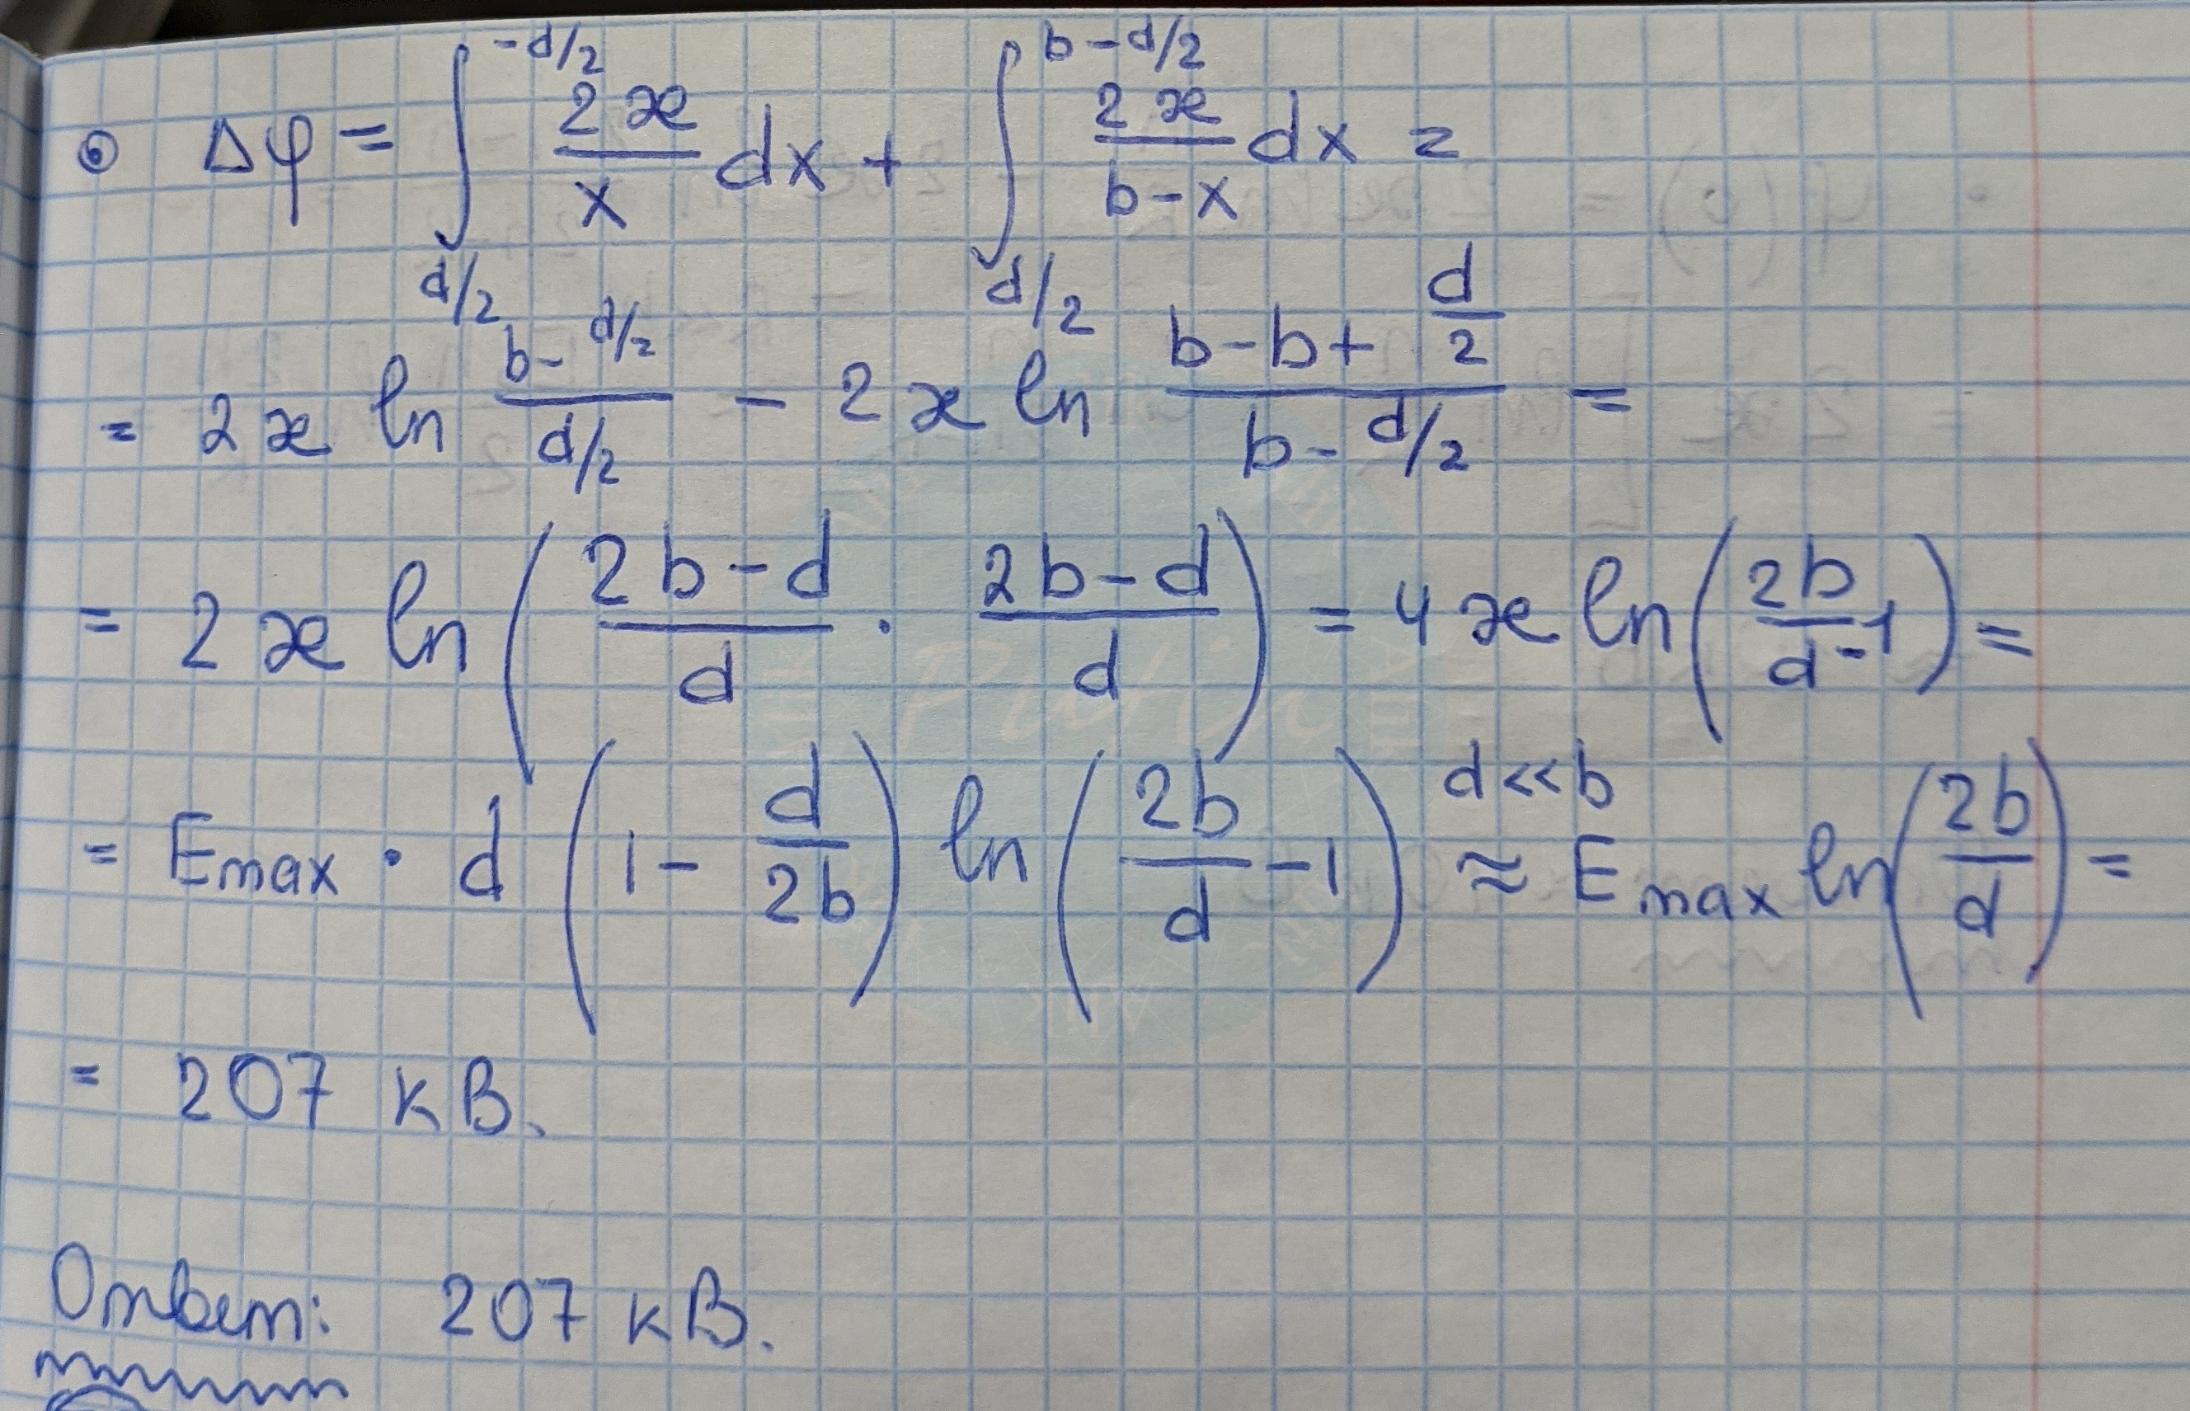 Δφ = ∫_{d/2}^{-d/2} \frac{2æ}{x} dx + ∫_{d/2}^{b-d/2} \frac{2æ}{b-x} dx =
= 2æ ln \frac{b-d/2}{d/2} - 2æ ln \frac{b-b+\frac{d}{2}}{b-d/2} =
= 2æ ln (\frac{2b-d}{d} · \frac{2b-d}{d}) = 4æ ln (\frac{2b}{d} -1) =
= E_{max} · d (1 - \frac{d}{2b}) ln (\frac{2b}{d} -1) \overset{d<<b}{≈} E_{max} ln (\frac{2b}{d}) =
= 207 кВ.
Ответ: 207 кВ.